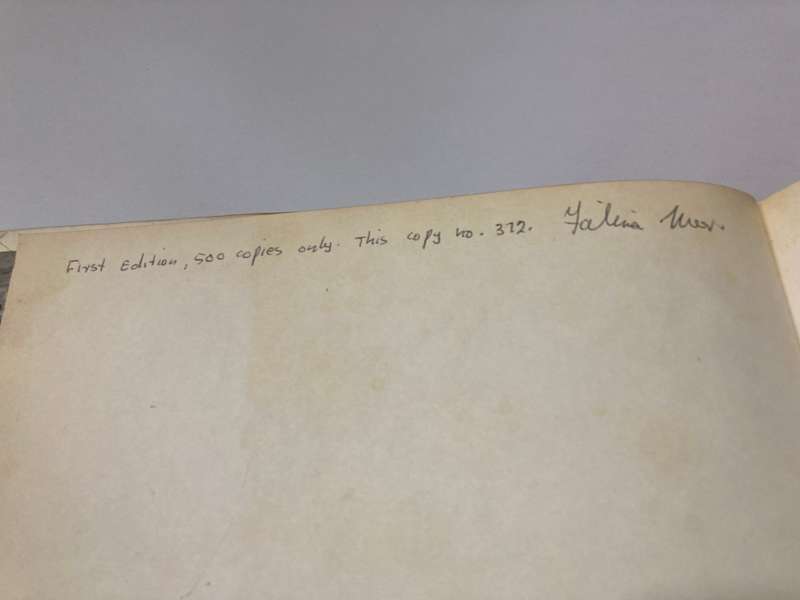 First Edition, 500 copies only. This copy no. 372.